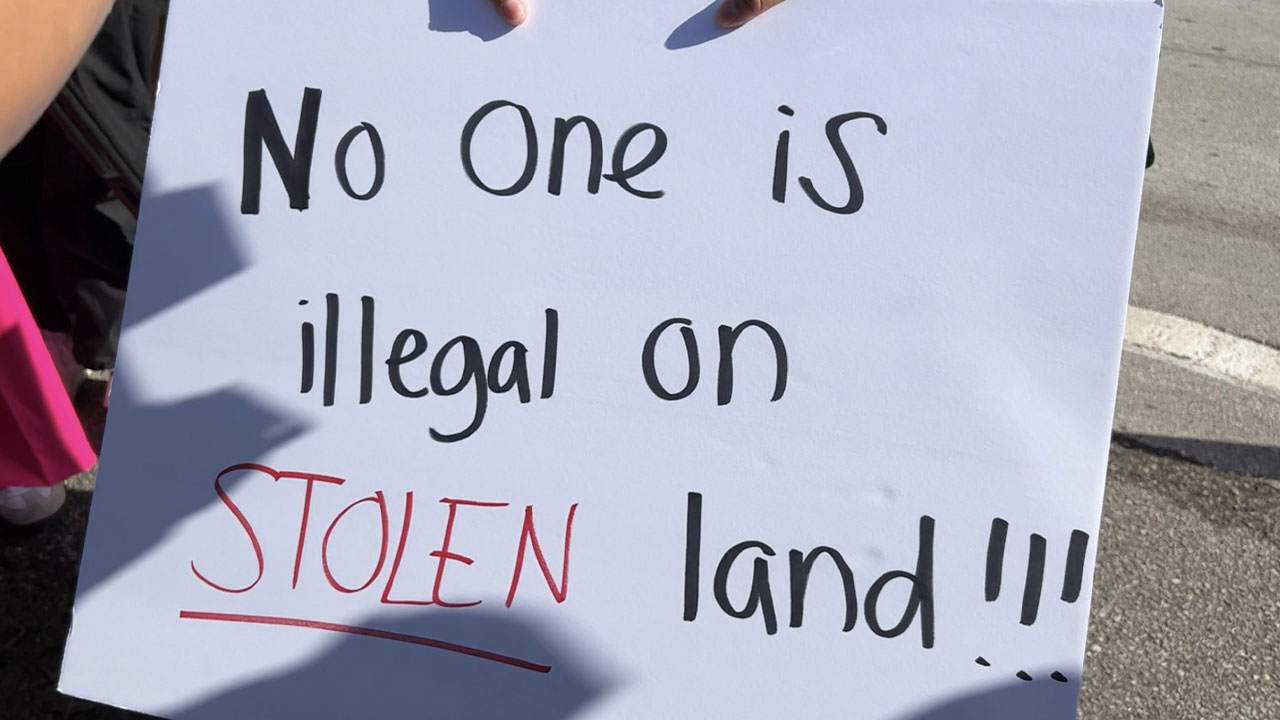 No One is
illegal on
STOLEN land!!!